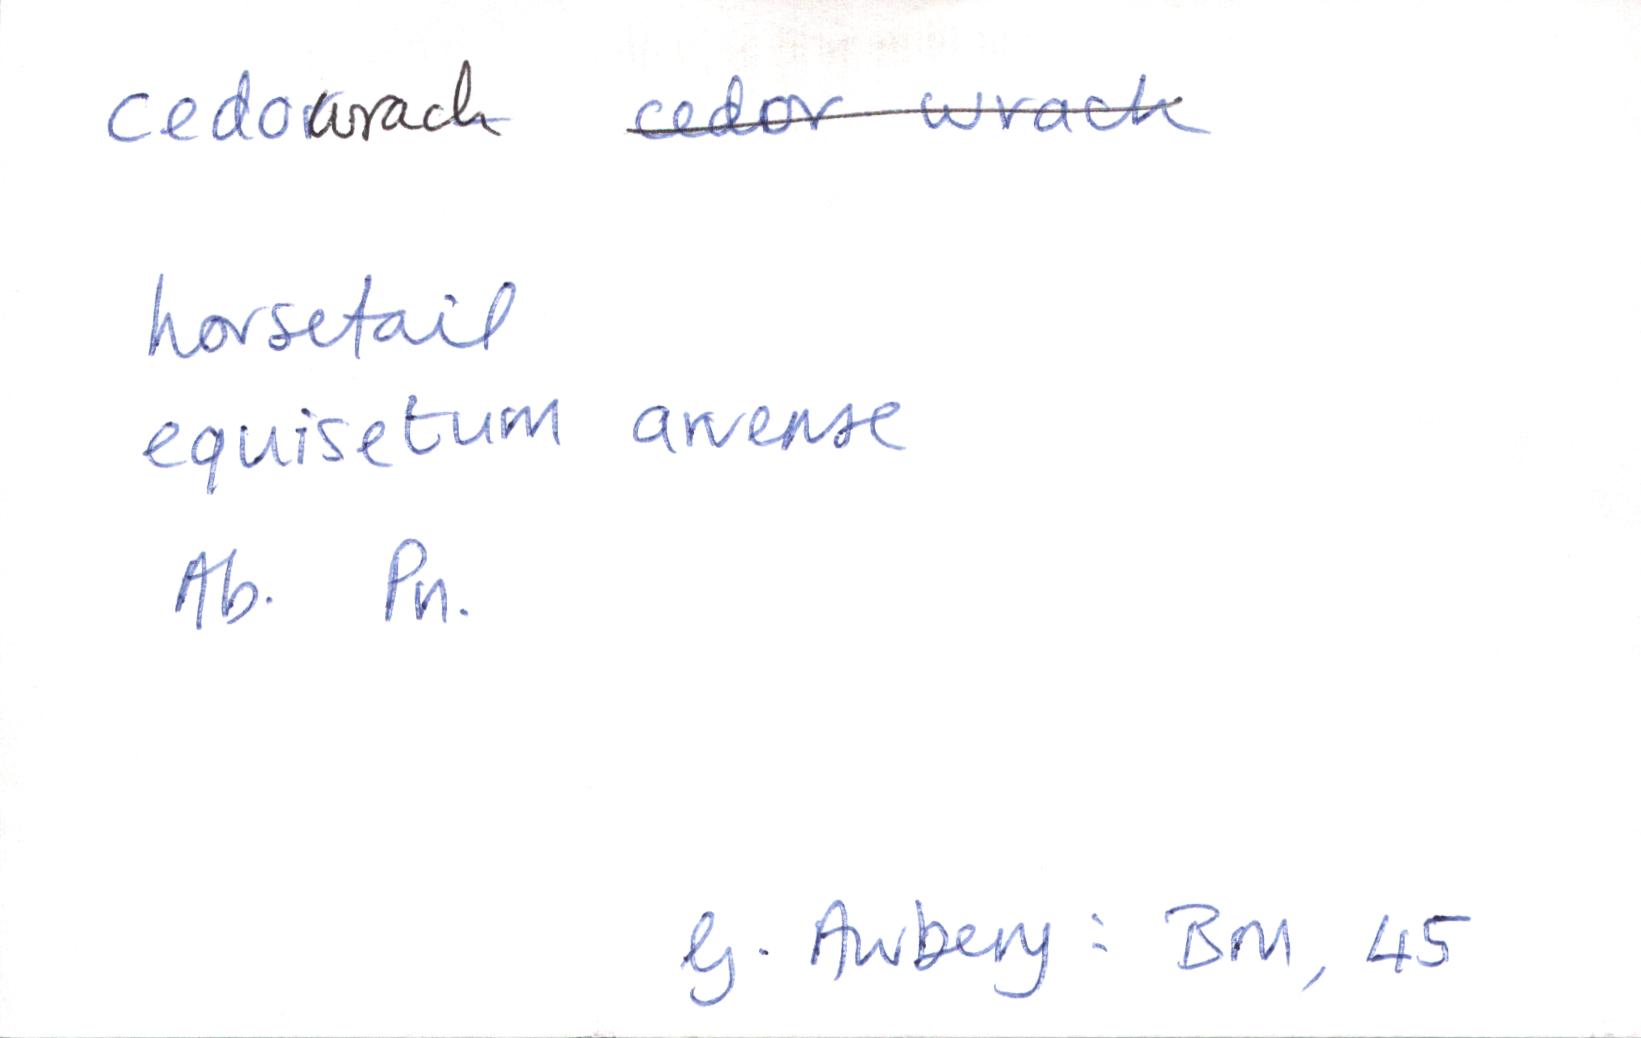 cedowrach cedor wrach
horsetail
equisetum arvense
Ab. Pn.
G. Awbery: BM, 45